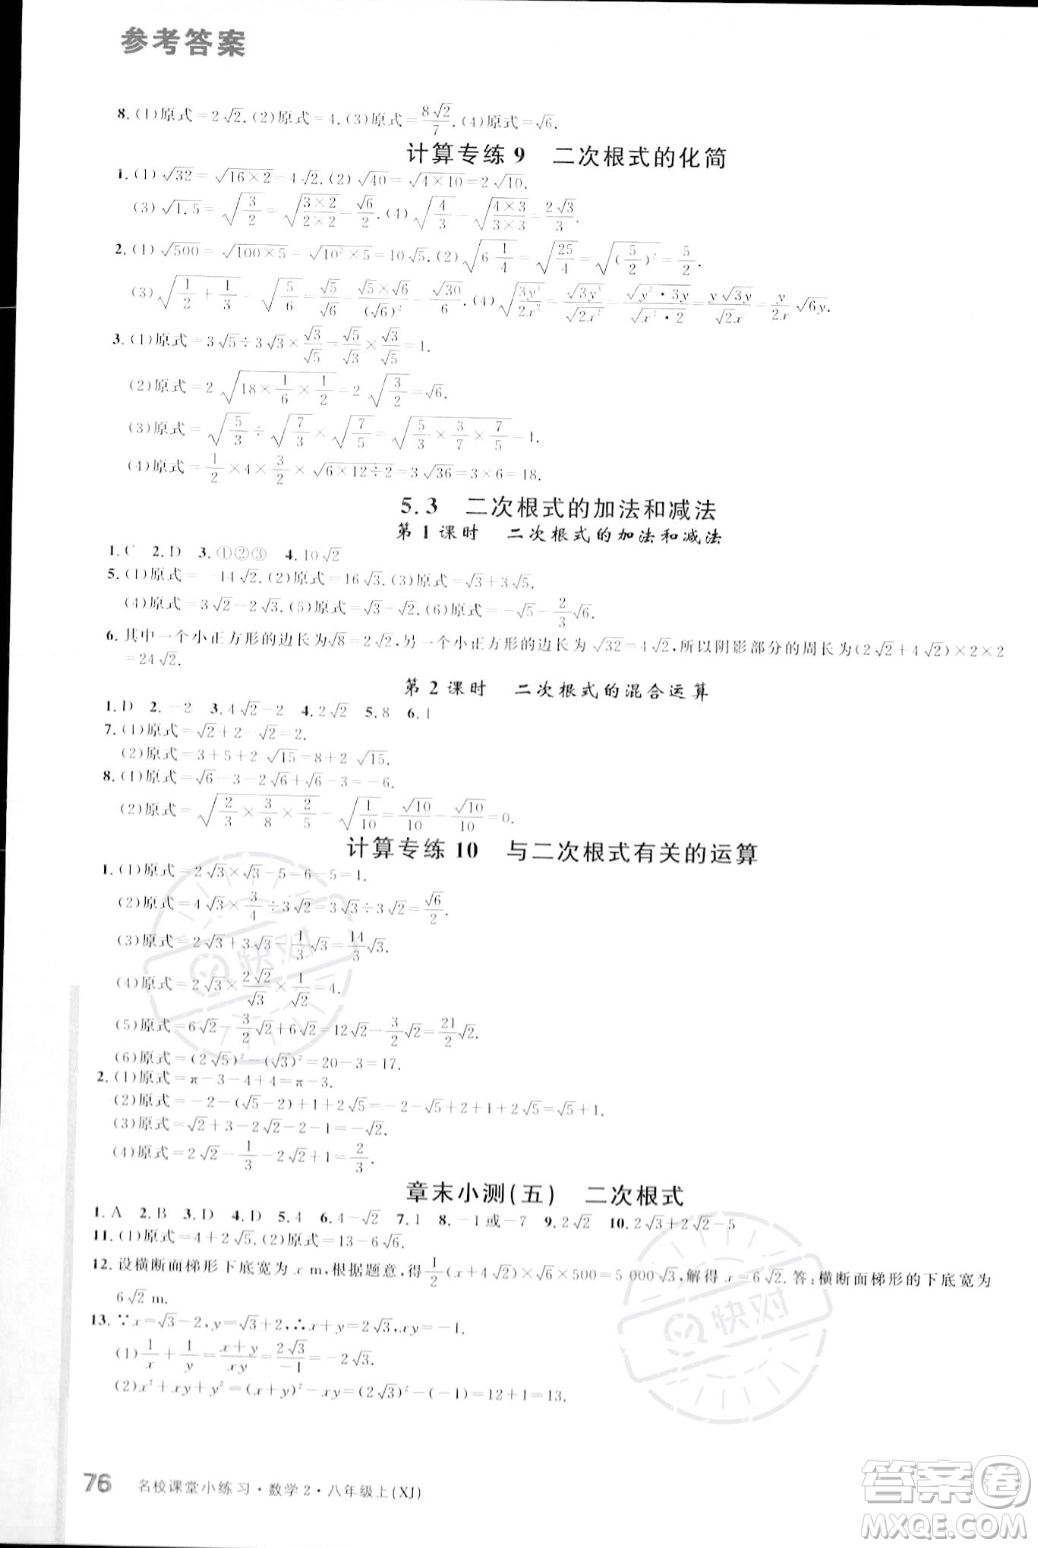 参考答案
8. (1)原式=2√2. (2)原式=4. (3)原式=8√2/7. (4)原式=√6.
计算专练 9 二次根式的化简
1. (1)√32=√(16×2)=4√2. (2)√40=√(4×10)=2√10.
(3)√1.5=√(3/2)=√((3×2)/(2×2))=√6/2. (4)√(4/3)=√((4×3)/(3×3))=2√3/3.
2. (1)√500=√(100×5)=√(10²×5)=10√5. (2)√(6 1/4)=√(25/4)=√((5/2)²)=5/2.
(3)√(1/2+1/3)=√(5/6)=√5/√6=(√5×√6)/(√6)²=√30/6. (4)√(3y³/2x²)=√3y³/√2x²=√(y²·3y)/√(x²·2)=y√3y/√2x=y/2x √6y.
3. (1)原式=3√5÷3√3×√3/√5=√5/√3×√3/√5=1.
(2)原式=2√(18×1/6×1/2)=2√(3/2)=√6.
(3)原式=√(5/3)÷√(7/3)×√(7/5)=√(5/3×3/7×7/5)=1.
(4)原式=1/2×4×3/2×√(6×12÷2)=3√36=3×6=18.
5.3 二次根式的加法和减法
第1课时 二次根式的加法和减法
1. C 2. D 3. ①②③ 4. 10√2
5. (1)原式=-14√2. (2)原式=16√3. (3)原式=√3+3√5.
(4)原式=3√2-2√3. (5)原式=2√2. (6)原式=-√5-2/3√3.
6. 其中一个小正方形的边长为√8=2√2,另一个小正方形的边长为√32=4√2,所以阴影部分的周长为(2√2+4√2)×2×2
=24√2.
第2课时 二次根式的混合运算
1. D 2. -2 3. 4√2-2 4. 2√2 5. 8 6. 1
7. (1)原式=√2+2-√2=2.
(2)原式=3+5+2√15=8+2√15.
8. (1)原式=√6-3-2√6+√6-3=-6.
(2)原式=√(2/3×3/8×2/5)-√(1/10)=√10/10-√10/10=0.
计算专练 10 与二次根式有关的运算
1. (1)原式=2√3×√3-5=6-5=1.
(2)原式=4√3×√3/4÷2√3=3÷2√3=√3/2.
(3)原式=2√3+3√3-1/3√3=14/3√3.
(4)原式=√2×2√2/√3×√2×1/√2=4.
(5)原式=6√2-3/2√2+6√2=12√2-3/2√2=21/2√2.
(6)原式=(2√5)²-(√3)²=20-3=17.
2. (1)原式=π-3-4+4=π-3.
(2)原式=-2-(√5-2)+1+2√5=-2-√5+2+1+2√5=√5+1.
(3)原式=√2+3-√2-1=2.
(4)原式=2√2-1/3-2√2+1=2/3.
章末小测(五) 二次根式
1. A 2. B 3. D 4. D 5. 4 6. 4-√2 7. 1 8. -1或-7 9. 2√2 10. 2√3+2√2-5
11. (1)原式=4+√2. (2)原式=13-4√3.
12. 设横断面梯形下底宽为x m,根据题意,得1/2(x+4√2)×√6×500=5 000√3,解得x=6√2.答:横断面梯形的下底宽为
6√2 m.
13. ∵x=√3+2,y=√3-2,∴x+y=2√3,xy=-1.
(1)1/x+1/y=(x+y)/xy=2√3/-1=-2√3.
(2)x²+xy+y²=(x+y)²-xy=(2√3)²-(-1)=12+1=13.
快对
快对
76 名校课堂小练习·数学2·八年级上(XJ)
答案卷
MXEQE.COM